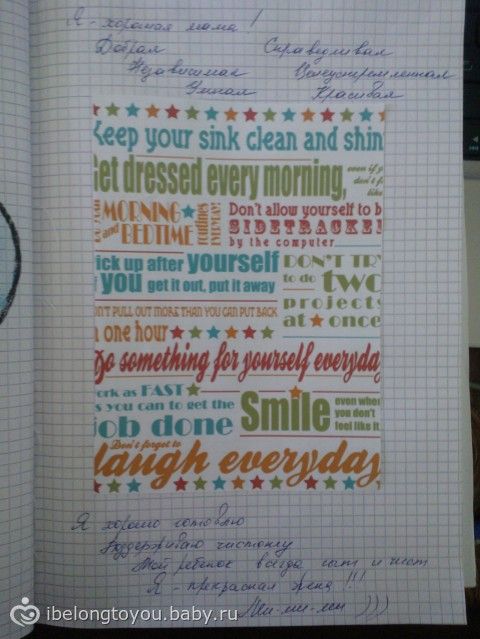 Я - хорошая мама!
Добрая Справедливая
Независимая Целеустремленная
Умная Красивая
Keep your sink clean and shin
Get dressed every morning,
even if y
don't f
like
MORNING and BEDTIME routines EVERYDAY!
Don't allow yourself to b
SIDETRACKE
by the computer
ick up after yourself
f you get it out, put it away
DON'T TRY
to do two
projects
at ★ once
ON'T PULL OUT MORE THAN YOU CAN PUT BACK
n one hour
Do something for yourself everyday
ork as FAST
s you can to get the
job done
Smile even when
you don't
feel like it
Don't forget to
laugh everyday
Я хорошо готовлю
Поддерживаю чистоту
Мой ребенок всегда сыт и чист
Я - прекрасная жена !!!
Ми-ми-ми )))
ibelongtoyou.baby.ru